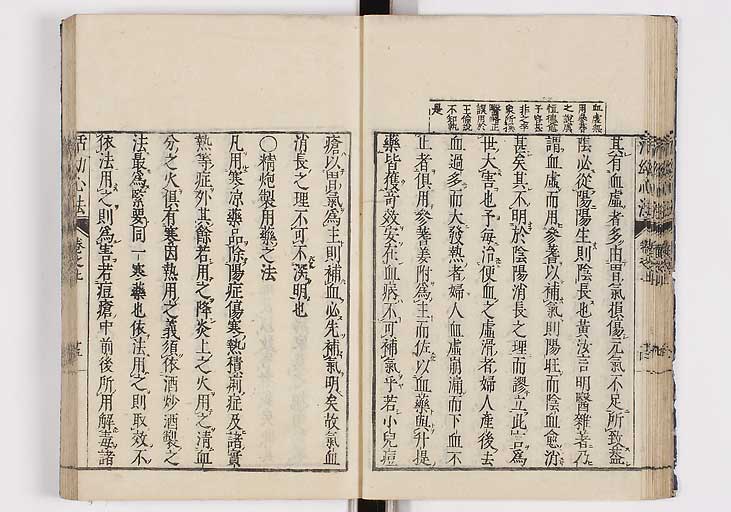 血虛無
用參蓍
之說虞
恒德愈
于容甚
非之李
象所撰
醫歸正
誤用於
王倫說
不知孰
是
其有血虛者多由胃氣損傷元氣不足所致蓋
陰必從陽陽生則陰長也黃汝言明醫雜著乃
謂血虛而用參蓍以補氣則陽旺而陰血愈消
甚矣其不明於陰陽消長之理而謬立此言爲
世大害也予每治便血之虛滑者婦人產後去
血過多而大發熱者婦人血虛崩漏而下血不
止者俱用參蓍姜附爲主而佐以血藥與升提
藥皆獲奇效安在血病不可補氣乎若小兒痘
瘡以胃氣爲主則補血必先補氣明矣故氣血
消長之理不可不深明也
○精炮製用藥之法
凡用寒凉藥品除陽症傷寒熱積痢症及諸實
熱等症外其餘若用之降炎上之火用之清血
分之火俱有寒因熱用之義須依酒炒酒製之
法最爲緊要同一寒藥也依法用之則取效不
依法用之則爲害若痘瘡中前後所用解毒諸
活幼心法
卷之